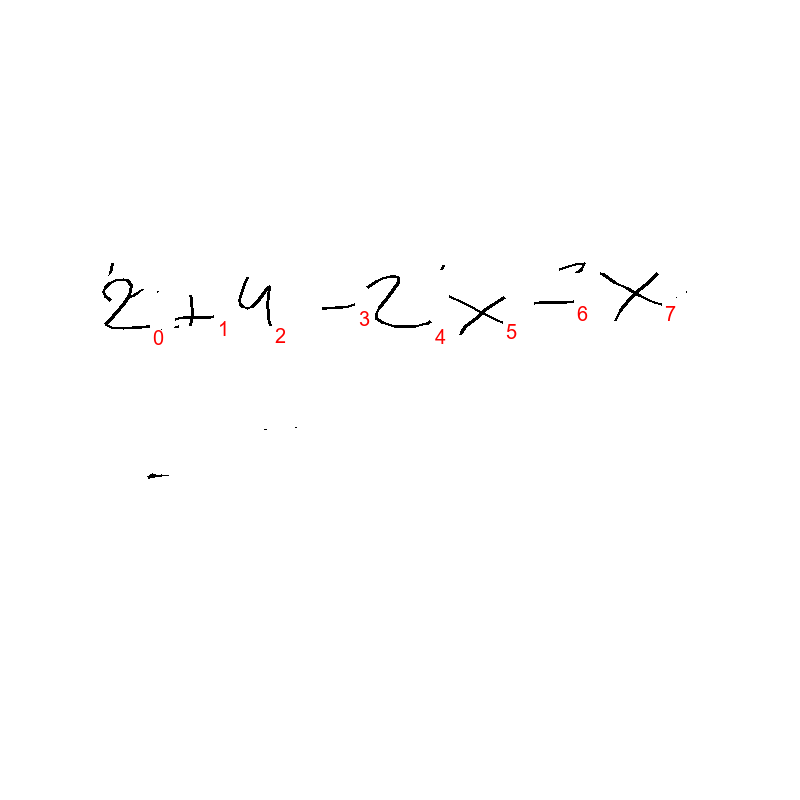 2+4-2x-x
0 1 2 3 4 5 6 7